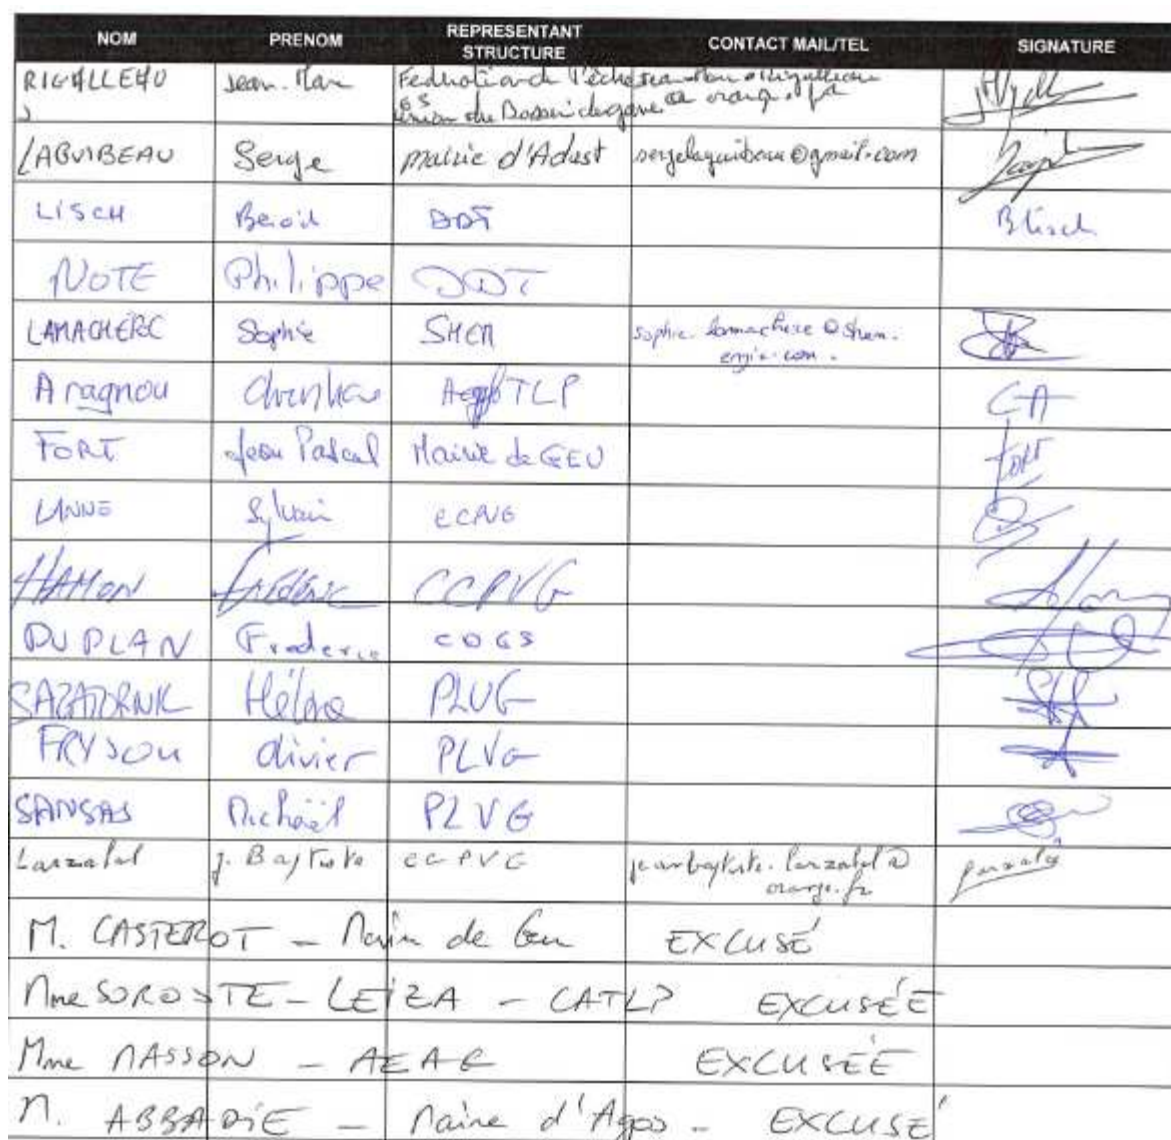 NOM PRENOM REPRESENTANT STRUCTURE CONTACT MAIL/TEL SIGNATURE
RIGALLEAU Jean-Marc
LAGUIBEAU Serge mairie d'Adast sergelaguibeau@gmail.com
LISCH Benoit DDT BLisch
NOTE Philippe DDT
LAMACHERE Sophie SHEM sophie.lamachere@shem.
engie.com.
Aragnou TLP CA
FORT Jean Pascal Mairie de GEU FORT
Sylvain CCPVG
HAMON Frédéric CCPVG
DUPLAN Frederic
SAZATORNIL Hélène PLVG
FRYSOU Olivier PLVG
SANSAS Michaël PLVG
Larzabal J. Baptiste CCPVG jeanbaptiste.larzabal@
orange.fr
M. CASTEROT - Maire de Geu EXCUSÉ
Mme SOROSTE - LEIZA - CATLP EXCUSÉE
Mme MASSON - AEAG EXCUSÉE
M. ABBADIE - Maire d'Agos - EXCUSÉ